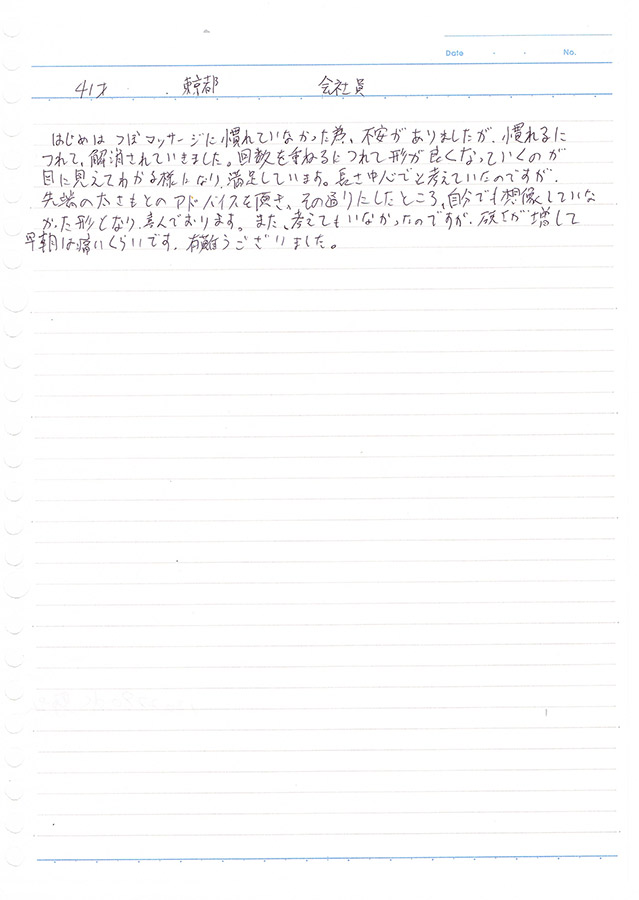 Date ・ ・ No.
41才 東京都 会社員
はじめは つぼマッサージに慣れていなかった為、不安がありましたが、慣れるに
つれて、解消されていきました。回数を重ねるにつれて形が良くなっていくのが
目に見えてわかる様になり、満足しています。長さ中心でと考えていたのですが、
先端の太さもとのアドバイスを頂き、その通りにしたところ、自分でも想像していな
かった形となり、喜んでおります。また、考えてもいなかったのですが、硬さが増して
早朝は痛いくらいです。有難うございました。